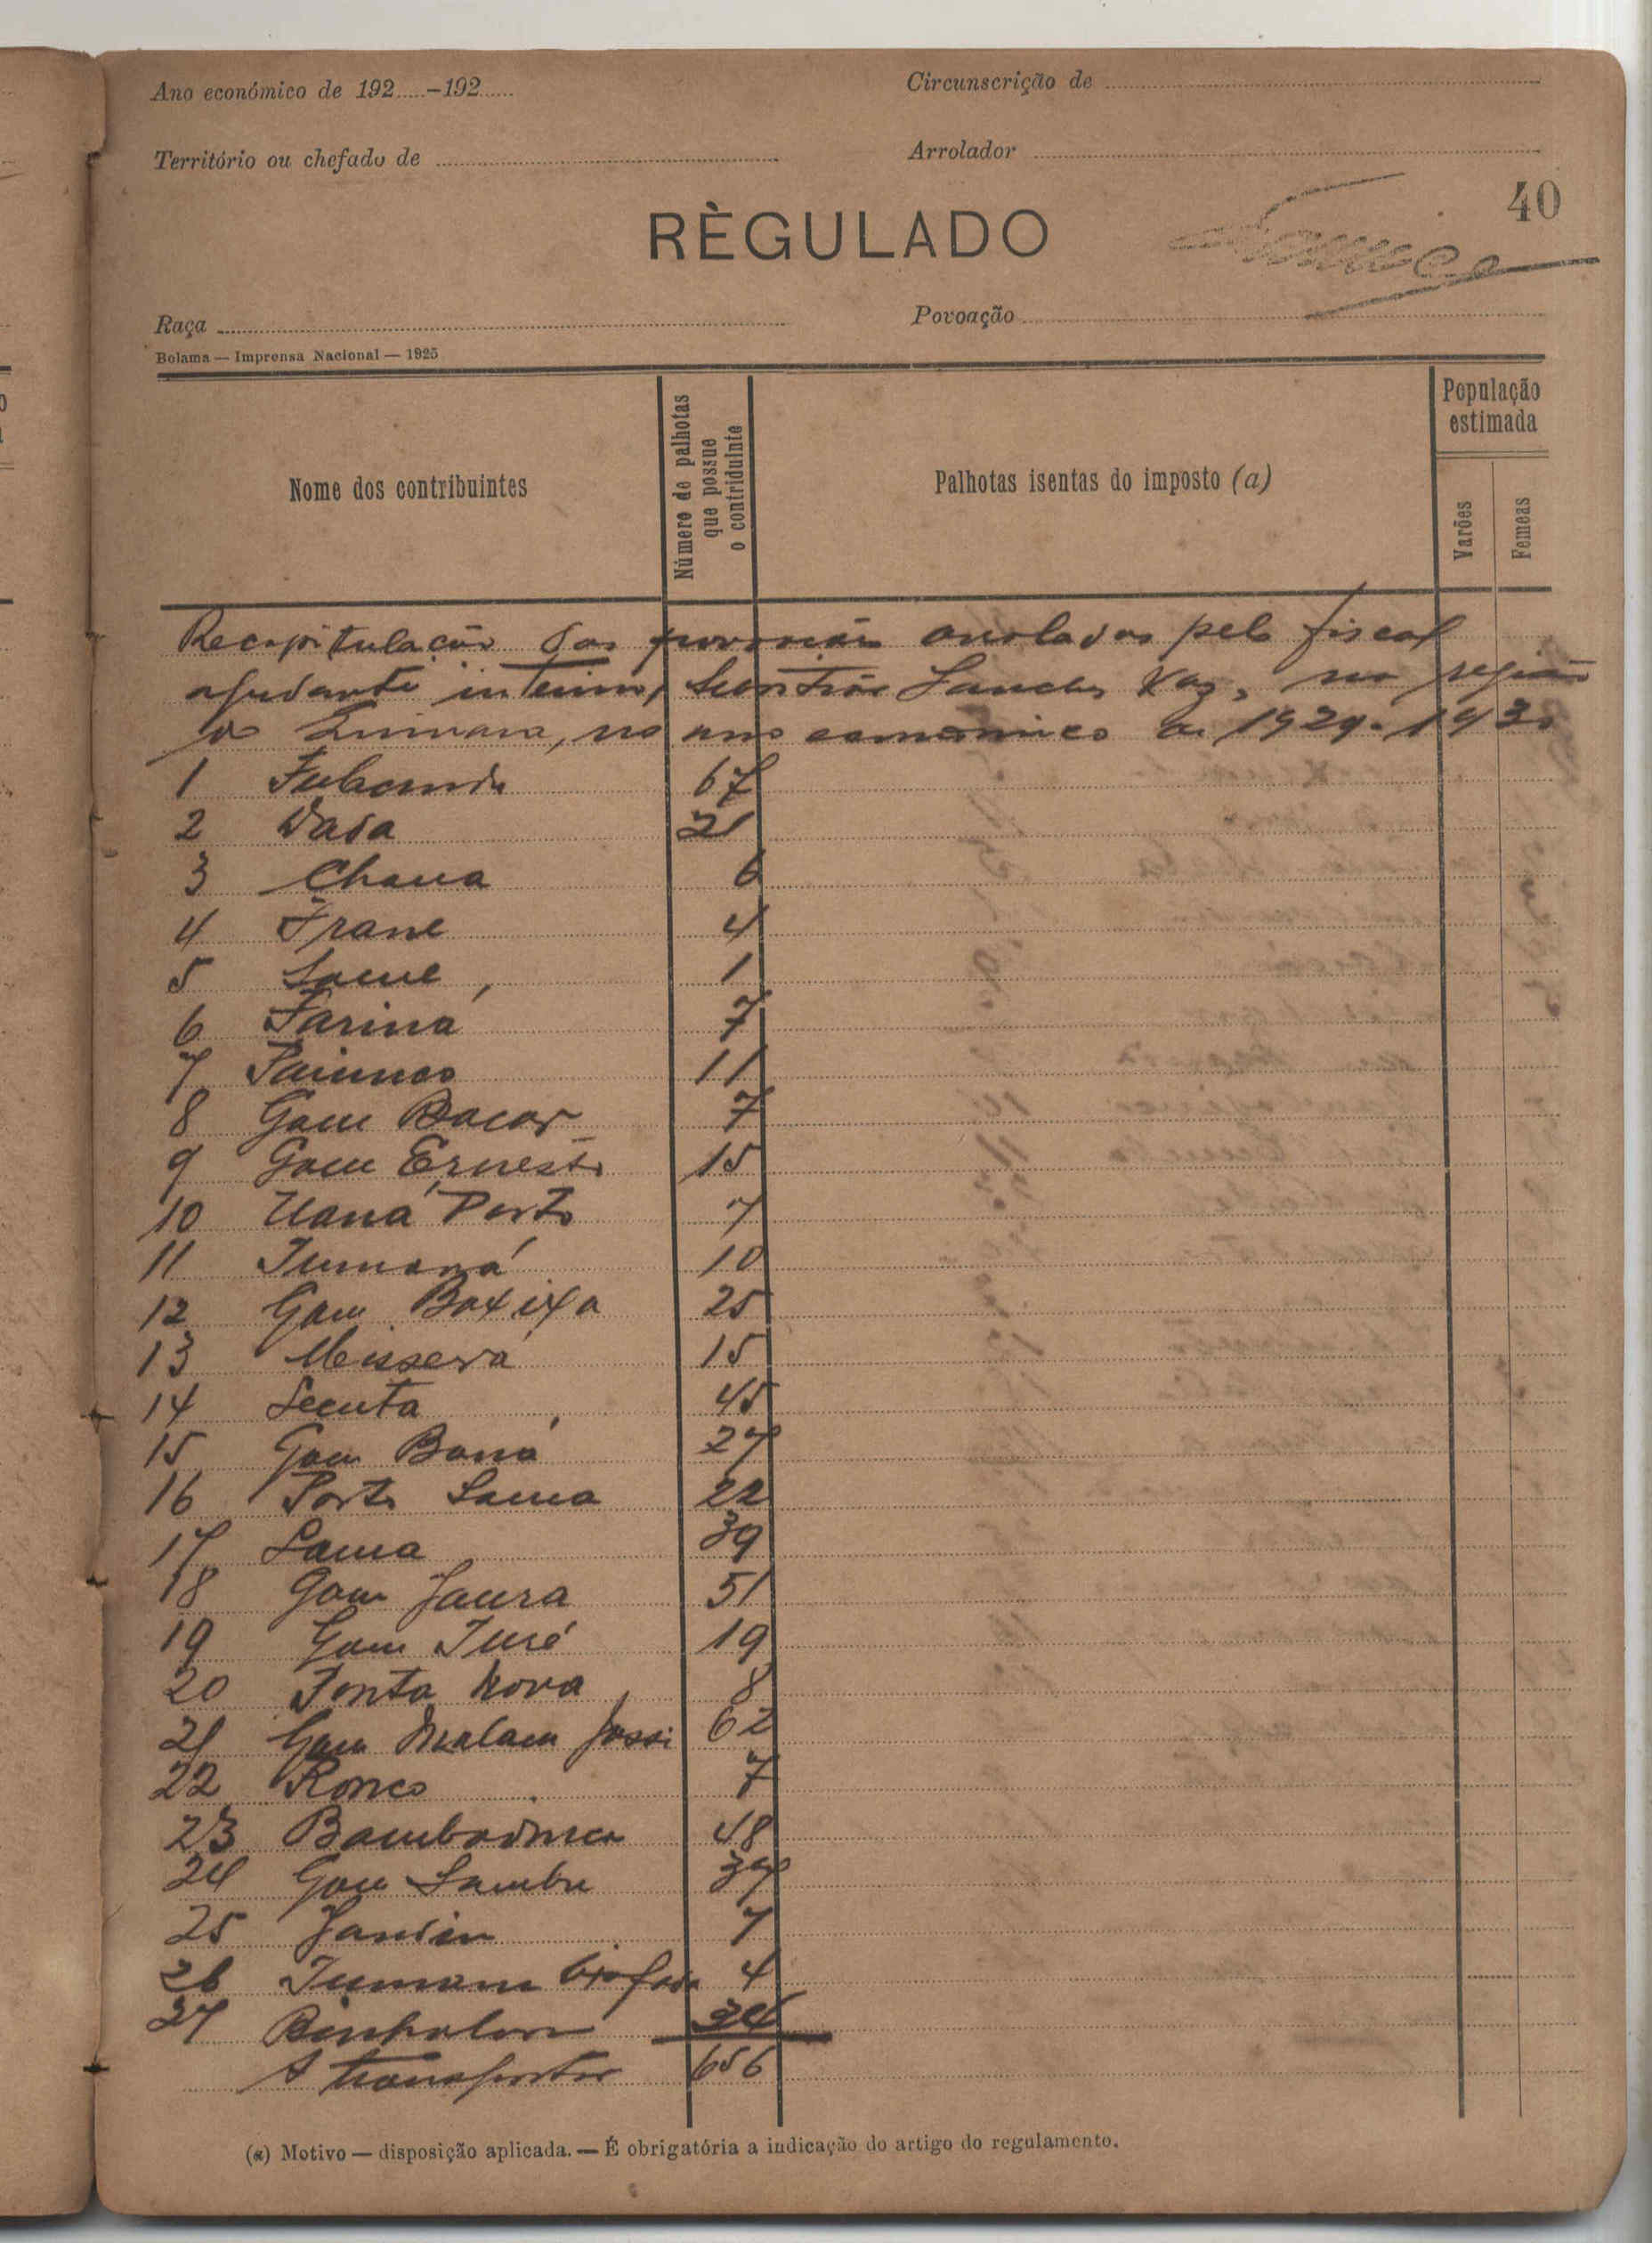 Ano económico de 192.....-192.....
Circunscrição de
Território ou chefado de
Arrolador
40
RÈGULADO
Raça
Povoação
Bolama — Imprensa Nacional — 1925
Nome dos contribuintes
Número de palhotas que possue o contriduinte
Palhotas isentas do imposto (a)
População estimada
Varões
Femeas
Recapitulação das arolados pelo fiscal
ajudante interino, Sanches Vaz, na região
no ano de 1929-1930
1 67
2 Dada 21
3 Chaua 6
4 4
5 1
6 Farina 7
7 11
8 Gam Bacar 7
9 Gam Ernesto 15
10 Uaná Porto 7
11 10
12 Gam Baxixa 25
13 Misserá 15
14 Secuta 45
15 Gam Baná 27
16 Porto Lama 22
17 Lama 39
18 Gam Jaura 51
19 Gam Turé 19
20 Ponta Nova 8
21 Gam Malam Jassi 62
22 Ronco 7
23 Bambadinca 48
24 Gam Sambu 37
25 Jandin 7
26 4
27 34
A transportar 656
(a) Motivo — disposição aplicada. — É obrigatória a indicação do artigo do regulamento.